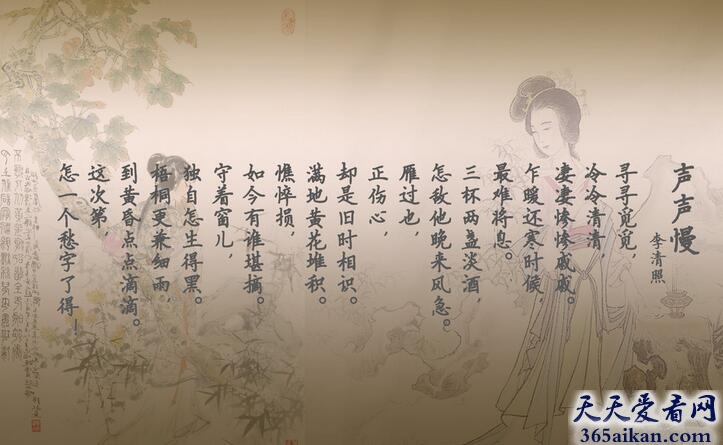 声声慢
李清照
寻寻觅觅，
冷冷清清，
凄凄惨惨戚戚。
乍暖还寒时候，
最难将息。
三杯两盏淡酒，
怎敌他晚来风急。
雁过也，
正伤心，
却是旧时相识。
满地黄花堆积。
憔悴损，
如今有谁堪摘。
守着窗儿，
独自怎生得黑。
梧桐更兼细雨，
到黄昏点点滴滴。
这次第，
怎一个愁字了得！
天天爱看网
365aikan.com